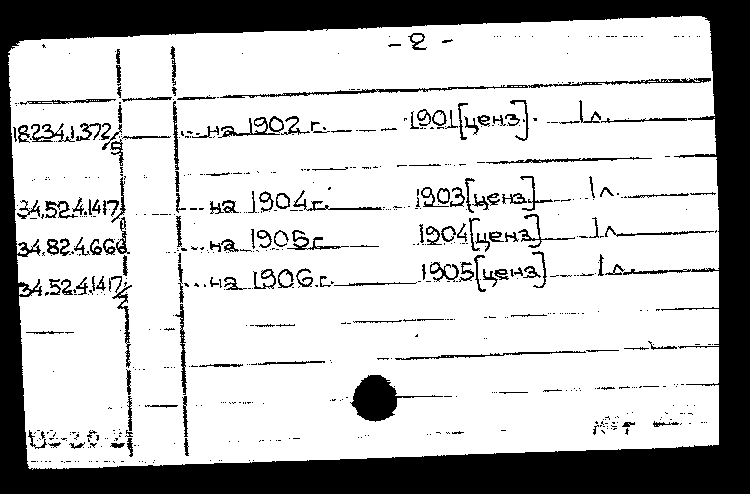 - 2 -
18234.1.372/5 ... на 1902 г. 1901 [ценз]. 1 л.
34.52.4.1417/1 ... на 1904 г. 1903 [ценз.] 1 л.
34.82.4.666 ... на 1905 г. 1904 [ценз.] 1 л.
34.52.4.1417/2 ... на 1906 г. 1905 [ценз.] 1 л.